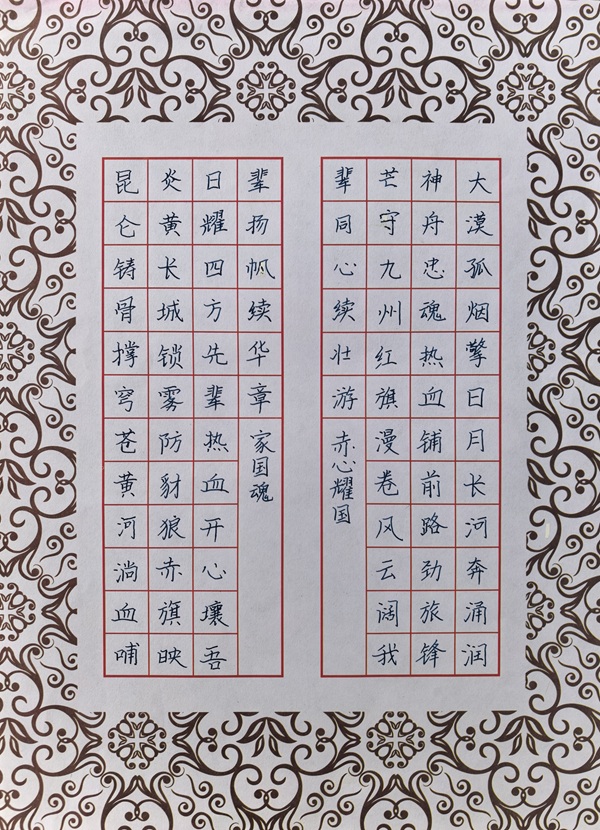 大漠孤烟擎日月长河奔涌润
神舟忠魂热血铺前路劲旅锋
芒守九州红旗漫卷风云阔我
辈同心续壮游
赤心耀国
昆仑铸骨撑穹苍黄河淌血哺
炎黄长城锁雾防豺狼赤旗映
日耀四方先辈热血开心壤吾
辈扬帆续华章
家国魂